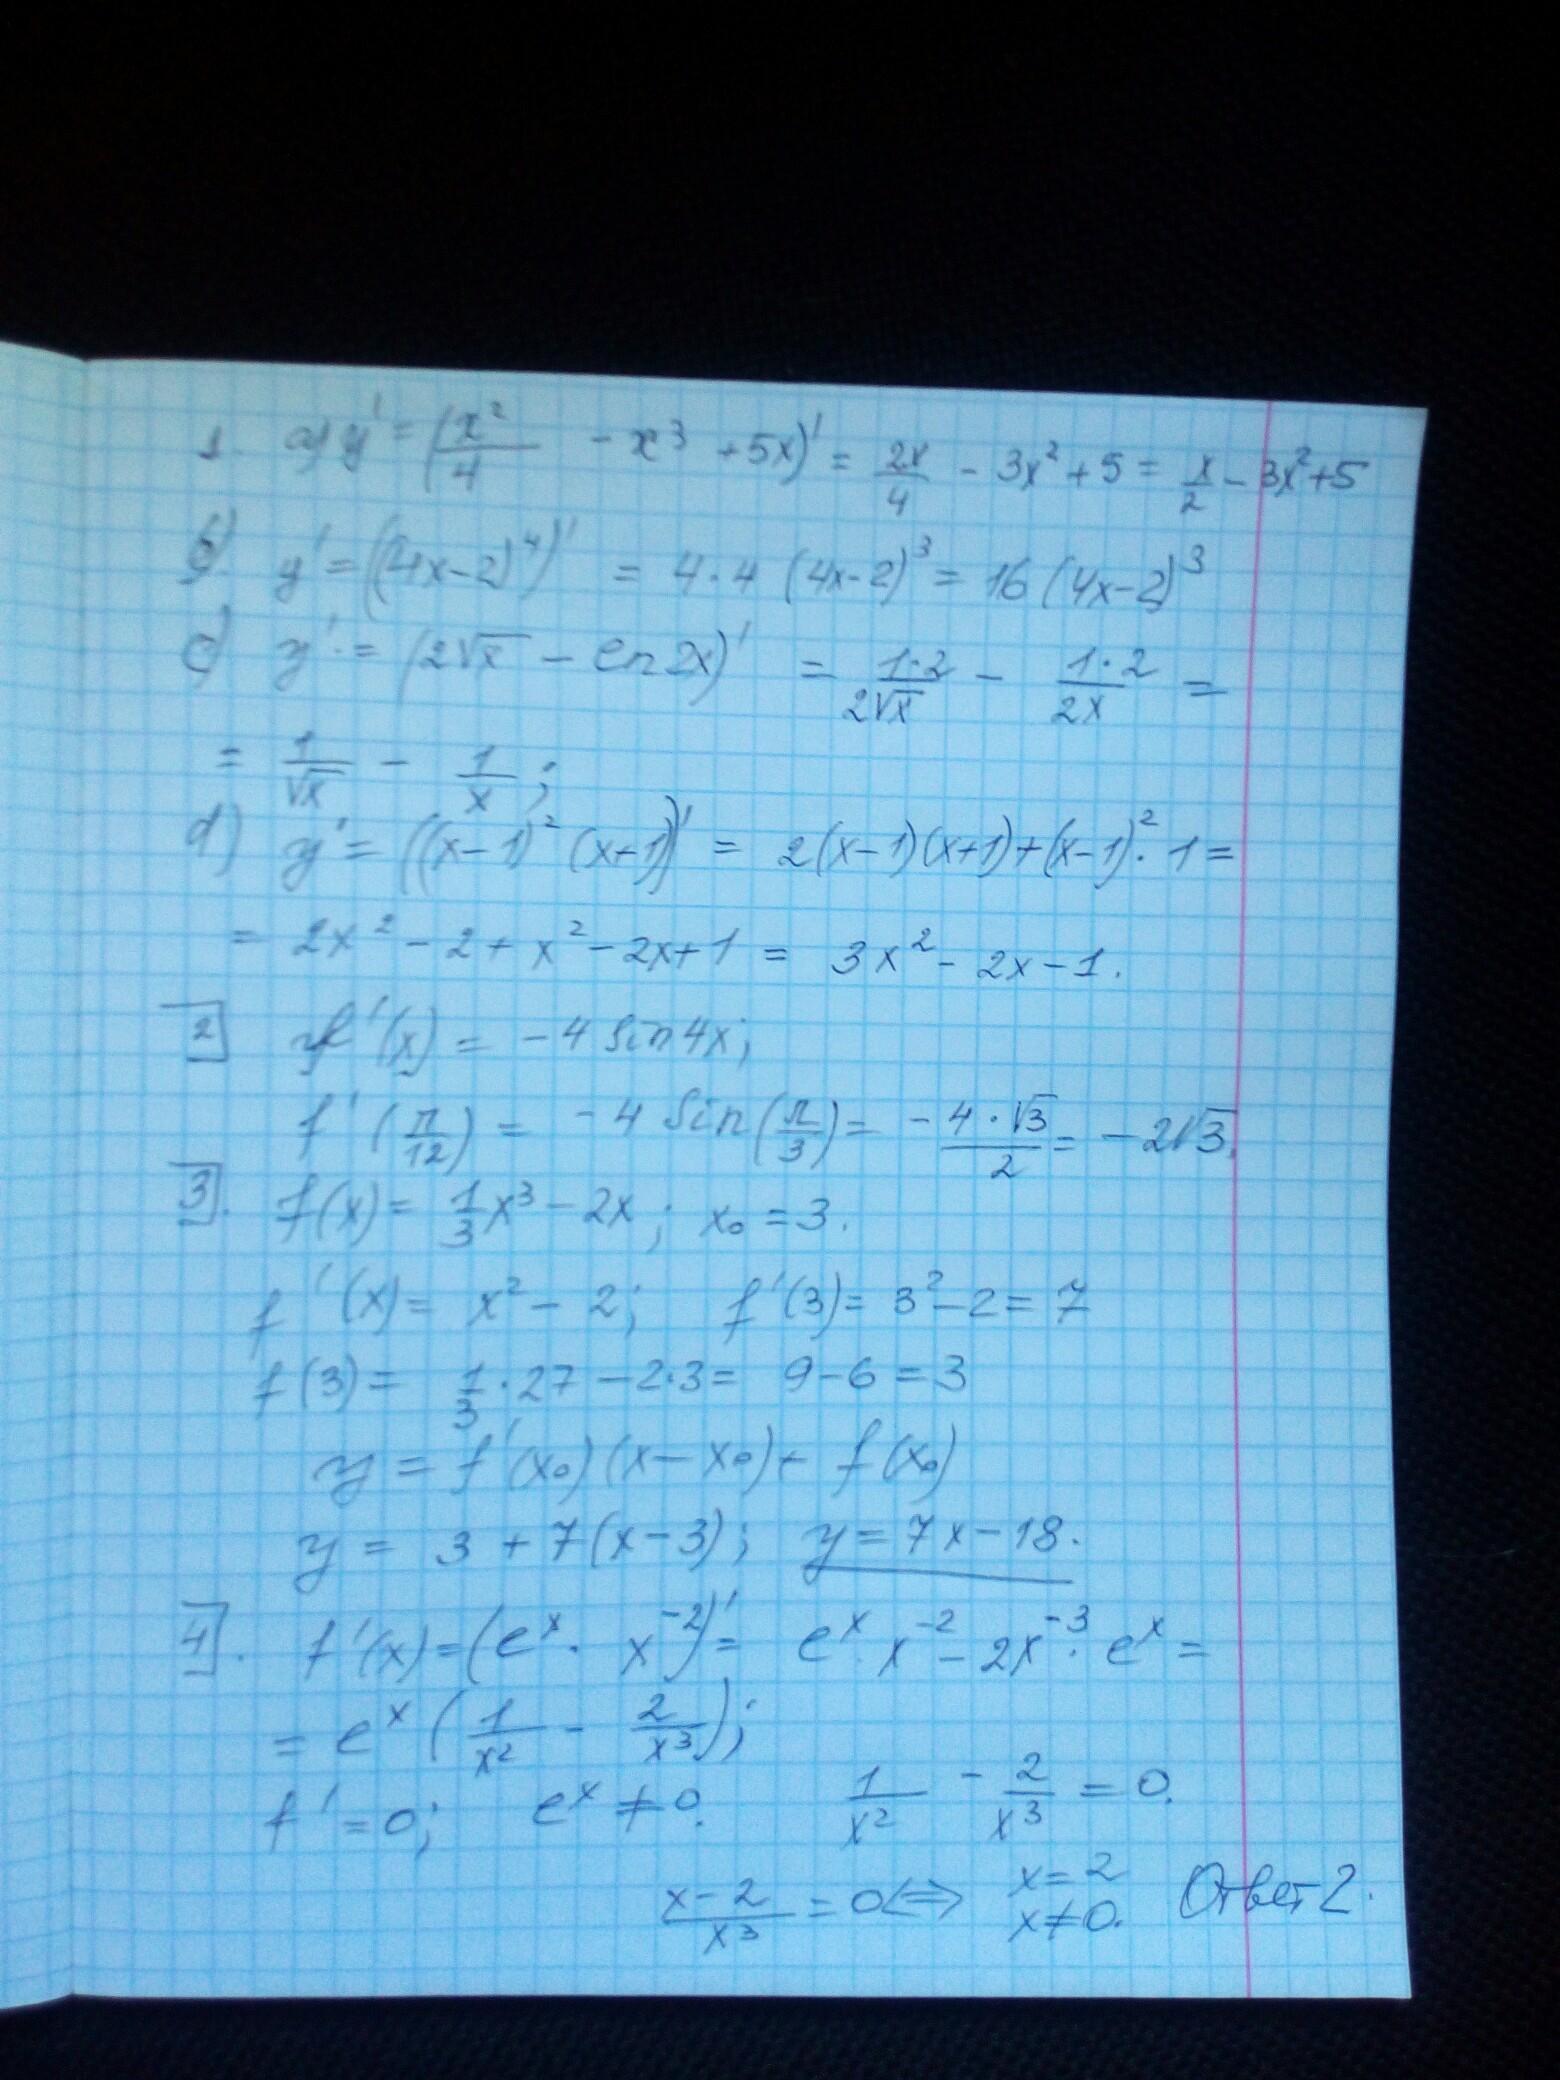 1. a) y' = (x²/4 - x³ + 5x)' = 2x/4 - 3x² + 5 = x/2 - 3x² + 5
b) y' = ((4x-2)⁴)' = 4·4 (4x-2)³ = 16 (4x-2)³
c) y' = (2√x - ln 2x)' = 1·2/2√x - 1·2/2x =
= 1/√x - 1/x ;
d) y' = ((x-1)² (x+1))' = 2(x-1)(x+1)+(x-1)²·1 =
= 2x² - 2 + x² - 2x + 1 = 3x² - 2x - 1.
2 f'(x) = -4 sin 4x;
f'(π/12) = -4 sin(π/3) = -4·√3/2 = -2√3.
3. f(x) = 1/3 x³ - 2x ; x₀ = 3.
f'(x) = x² - 2; f'(3) = 3² - 2 = 7
f(3) = 1/3·27 - 2·3 = 9 - 6 = 3
y = f'(x₀)(x - x₀) + f(x₀)
y = 3 + 7(x-3); y = 7x - 18.
4. f'(x) = (eˣ· x⁻²)' = eˣ·x⁻² - 2x⁻³·eˣ =
= eˣ (1/x² - 2/x³);
f' = 0; eˣ ≠ 0. 1/x² - 2/x³ = 0.
x-2/x³ = 0 <=> x = 2 x ≠ 0. Ответ 2.